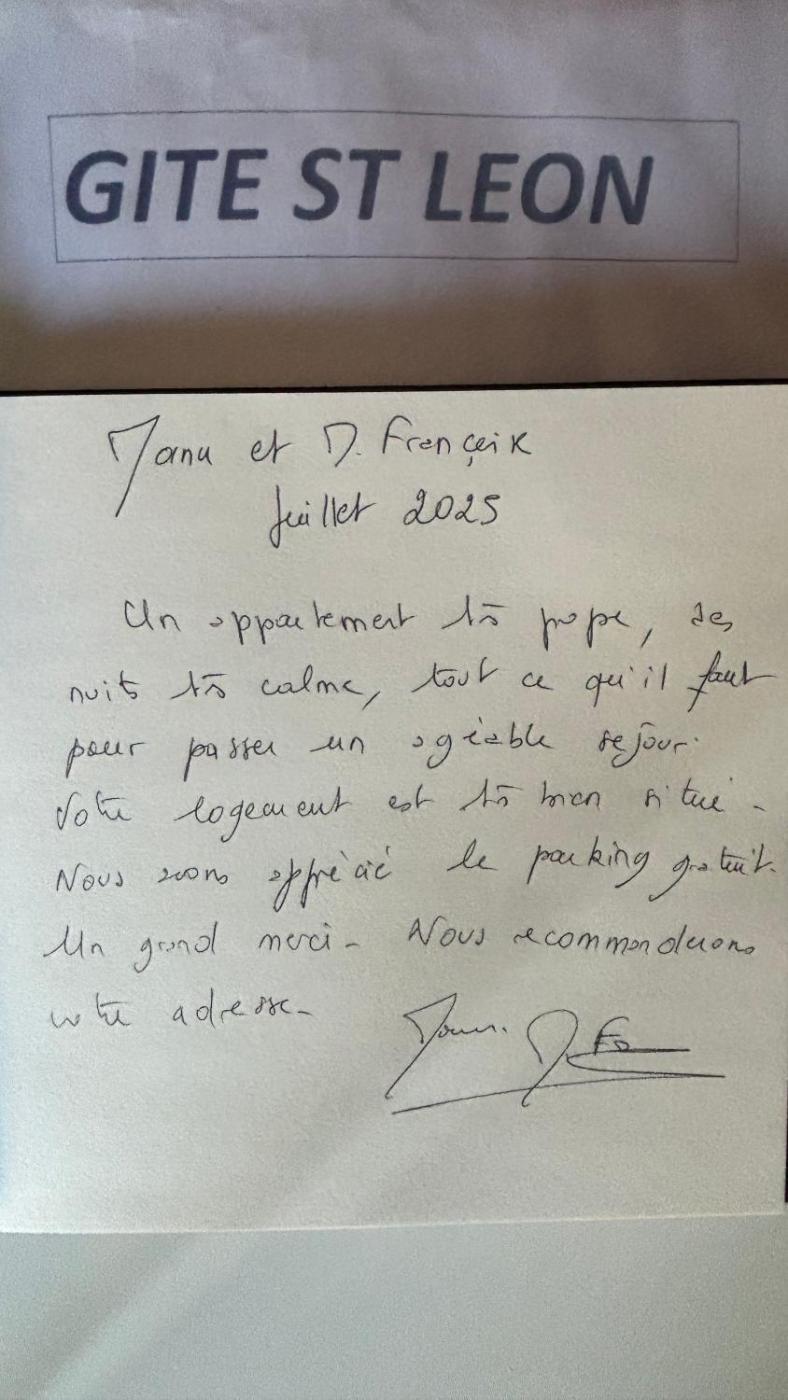 GITE ST LEON
Manu et D. Françeik
Juillet 2025
Un appartement très propre, des
nuits très calme, tout ce qu'il faut
pour passer un agréable sejour.
Votre logement est très bien situé.
Nous avons apprécié le parking gratuit.
Un grand merci. Nous recommanderons
votre adresse.